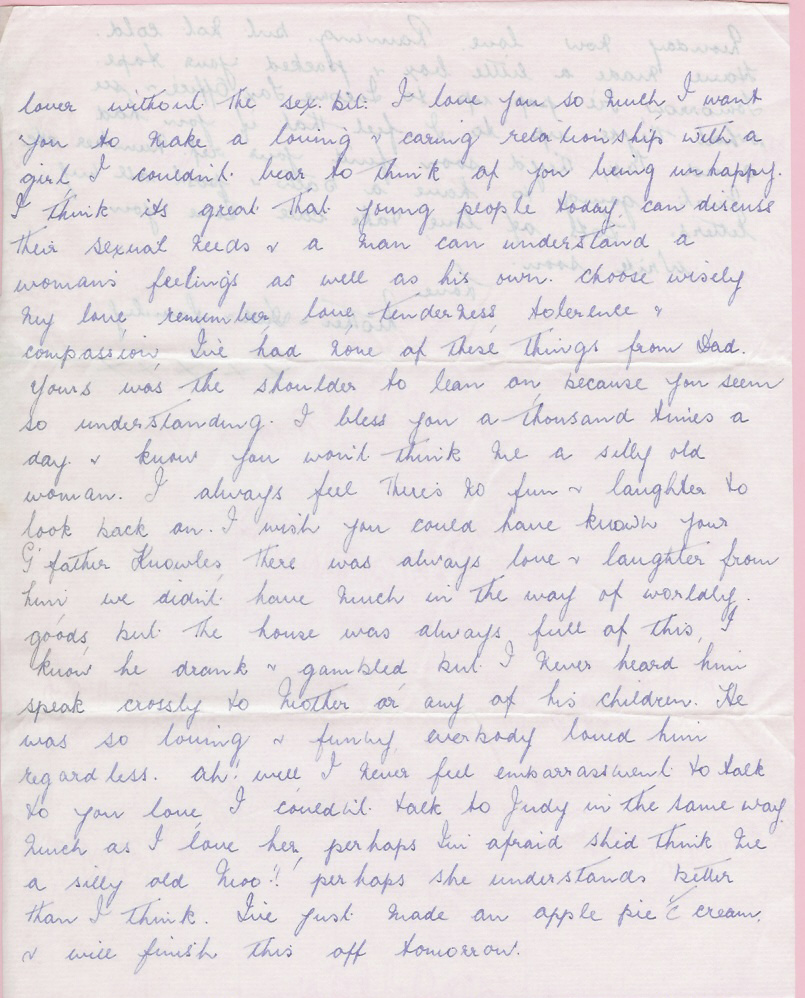 lover without the sex. bit. I love you so much I want
you to make a loving & caring relationship with a
girl, I couldn't bear to think of you being unhappy.
I think its great that young people today can discuss
their sexual needs & a man can understand a
womans feelings as well as his own. choose wisely
my love, remember love tenderness tolerence &
compassion, I've had none of these things from Dad.
Yours was the shoulder to lean on, because you seem
so understanding. I bless you a thousand times a
day. & know you won't think me a silly old
woman. I always feel there's no fun & laughter to
look back on. I wish you could have known your
G'father Knowles, there was always love & laughter from
him, we didn't have much in the way of worldly.
goods, but the house was always full of this, I
know he drank & gambled but I never heard him
speak crossly to Mother or, any of his children. He
was so loving & funny, everbody loved him
regardless. Ah! well I never feel embarrassment to talk
to you love, I couldn't talk to Judy in the same way
much as I love her, perhaps I'm afraid she'd think me
a silly old Moo!! perhaps she understands better
than I think. I've just made an apple pie & cream,
& will finish this off tomorrow.